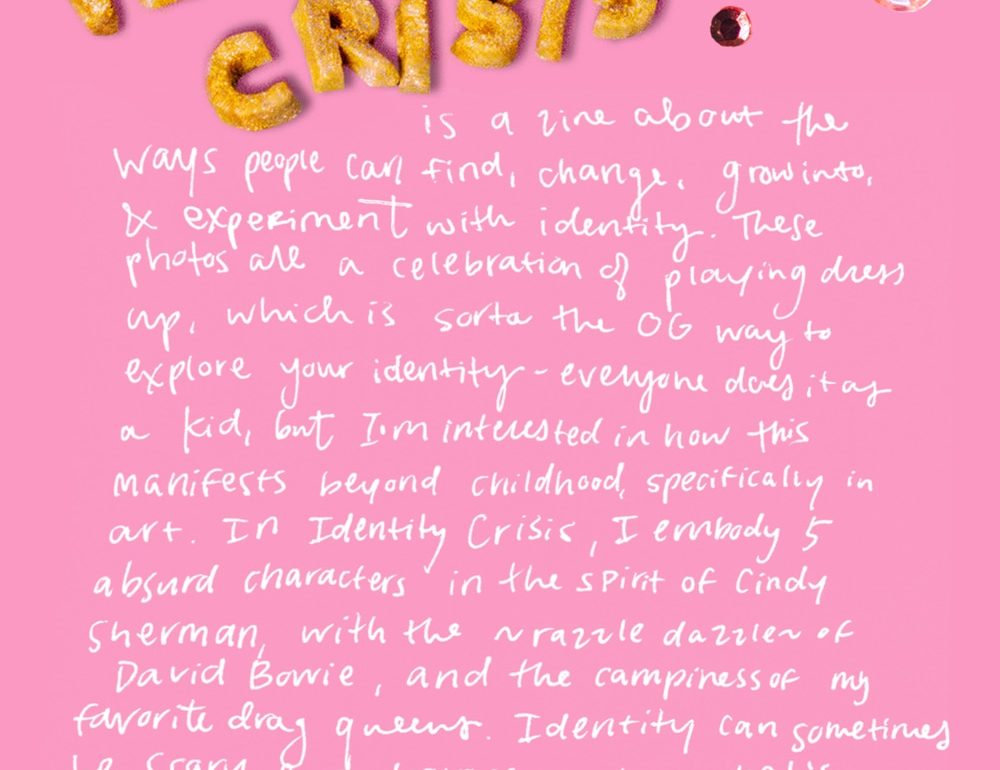 CRISIS
is a zine about the
ways people can find, change, grow into,
& experiment with identity. These
photos are a celebration of playing dress
up, which is sorta the OG way to
explore your identity - everyone does it as
a kid, but I'm interested in how this
manifests beyond childhood, specifically in
art. In Identity Crisis, I embody 5
absurd characters in the spirit of Cindy
Sherman, with the ~razzle dazzle~ of
David Bowie, and the campiness of my
favorite drag queens. Identity can sometimes
be scary